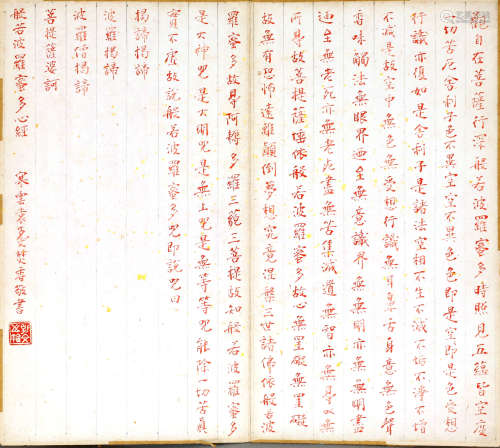 觀自在菩薩行深般若波羅蜜多時照見五蘊皆空度
切苦厄舍利子色不異空空不異色色即是空即是色受想
行識亦復如是舍利子是諸法空相不生不滅不垢不淨不增
不減是故空中無色無受想行識無眼耳鼻舌身意無色聲
香味觸法無眼界迺至無意識界無無明亦無無明盡
迺至無老死亦無老死盡無苦集滅道無智亦無得以無
所得故菩提薩埵依般若波羅蜜多故心無罣礙無罣礙
故無有恐怖遠離顛倒夢想究竟涅槃三世諸佛依般若波
羅蜜多故得阿耨多羅三藐三菩提故知般若波羅蜜多
是大神咒是大明咒是無上咒是無等等咒能除一切苦真
實不虛故說般若波羅蜜多咒即說咒曰
揭諦揭諦
波羅揭諦
波羅僧揭諦
菩提薩婆訶
般若波羅蜜多心經 寒雲袁克文焚香敬書